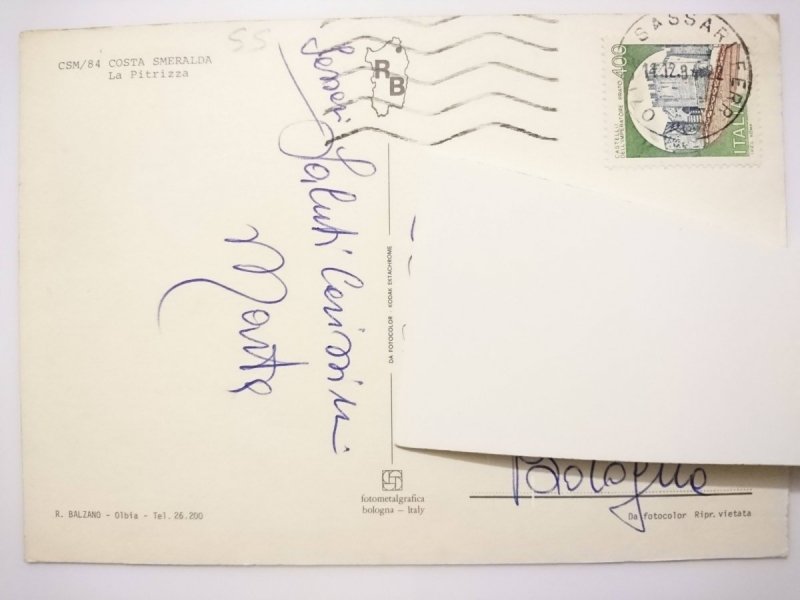 CSM/84 COSTA SMERALDA
La Pitrizza
55
RB
Saluti Carissimi
Marta
DA FOTOCOLOR KODAK EKTACHROME
fotometalgrafica
bologna — Italy
R. BALZANO - Olbia - Tel. 26.200
400
CASTELLO
DELL'IMPERATORE PRATO
ITALIA
SASSARI FERR
Bologna
Da fotocolor Ripr. vietata